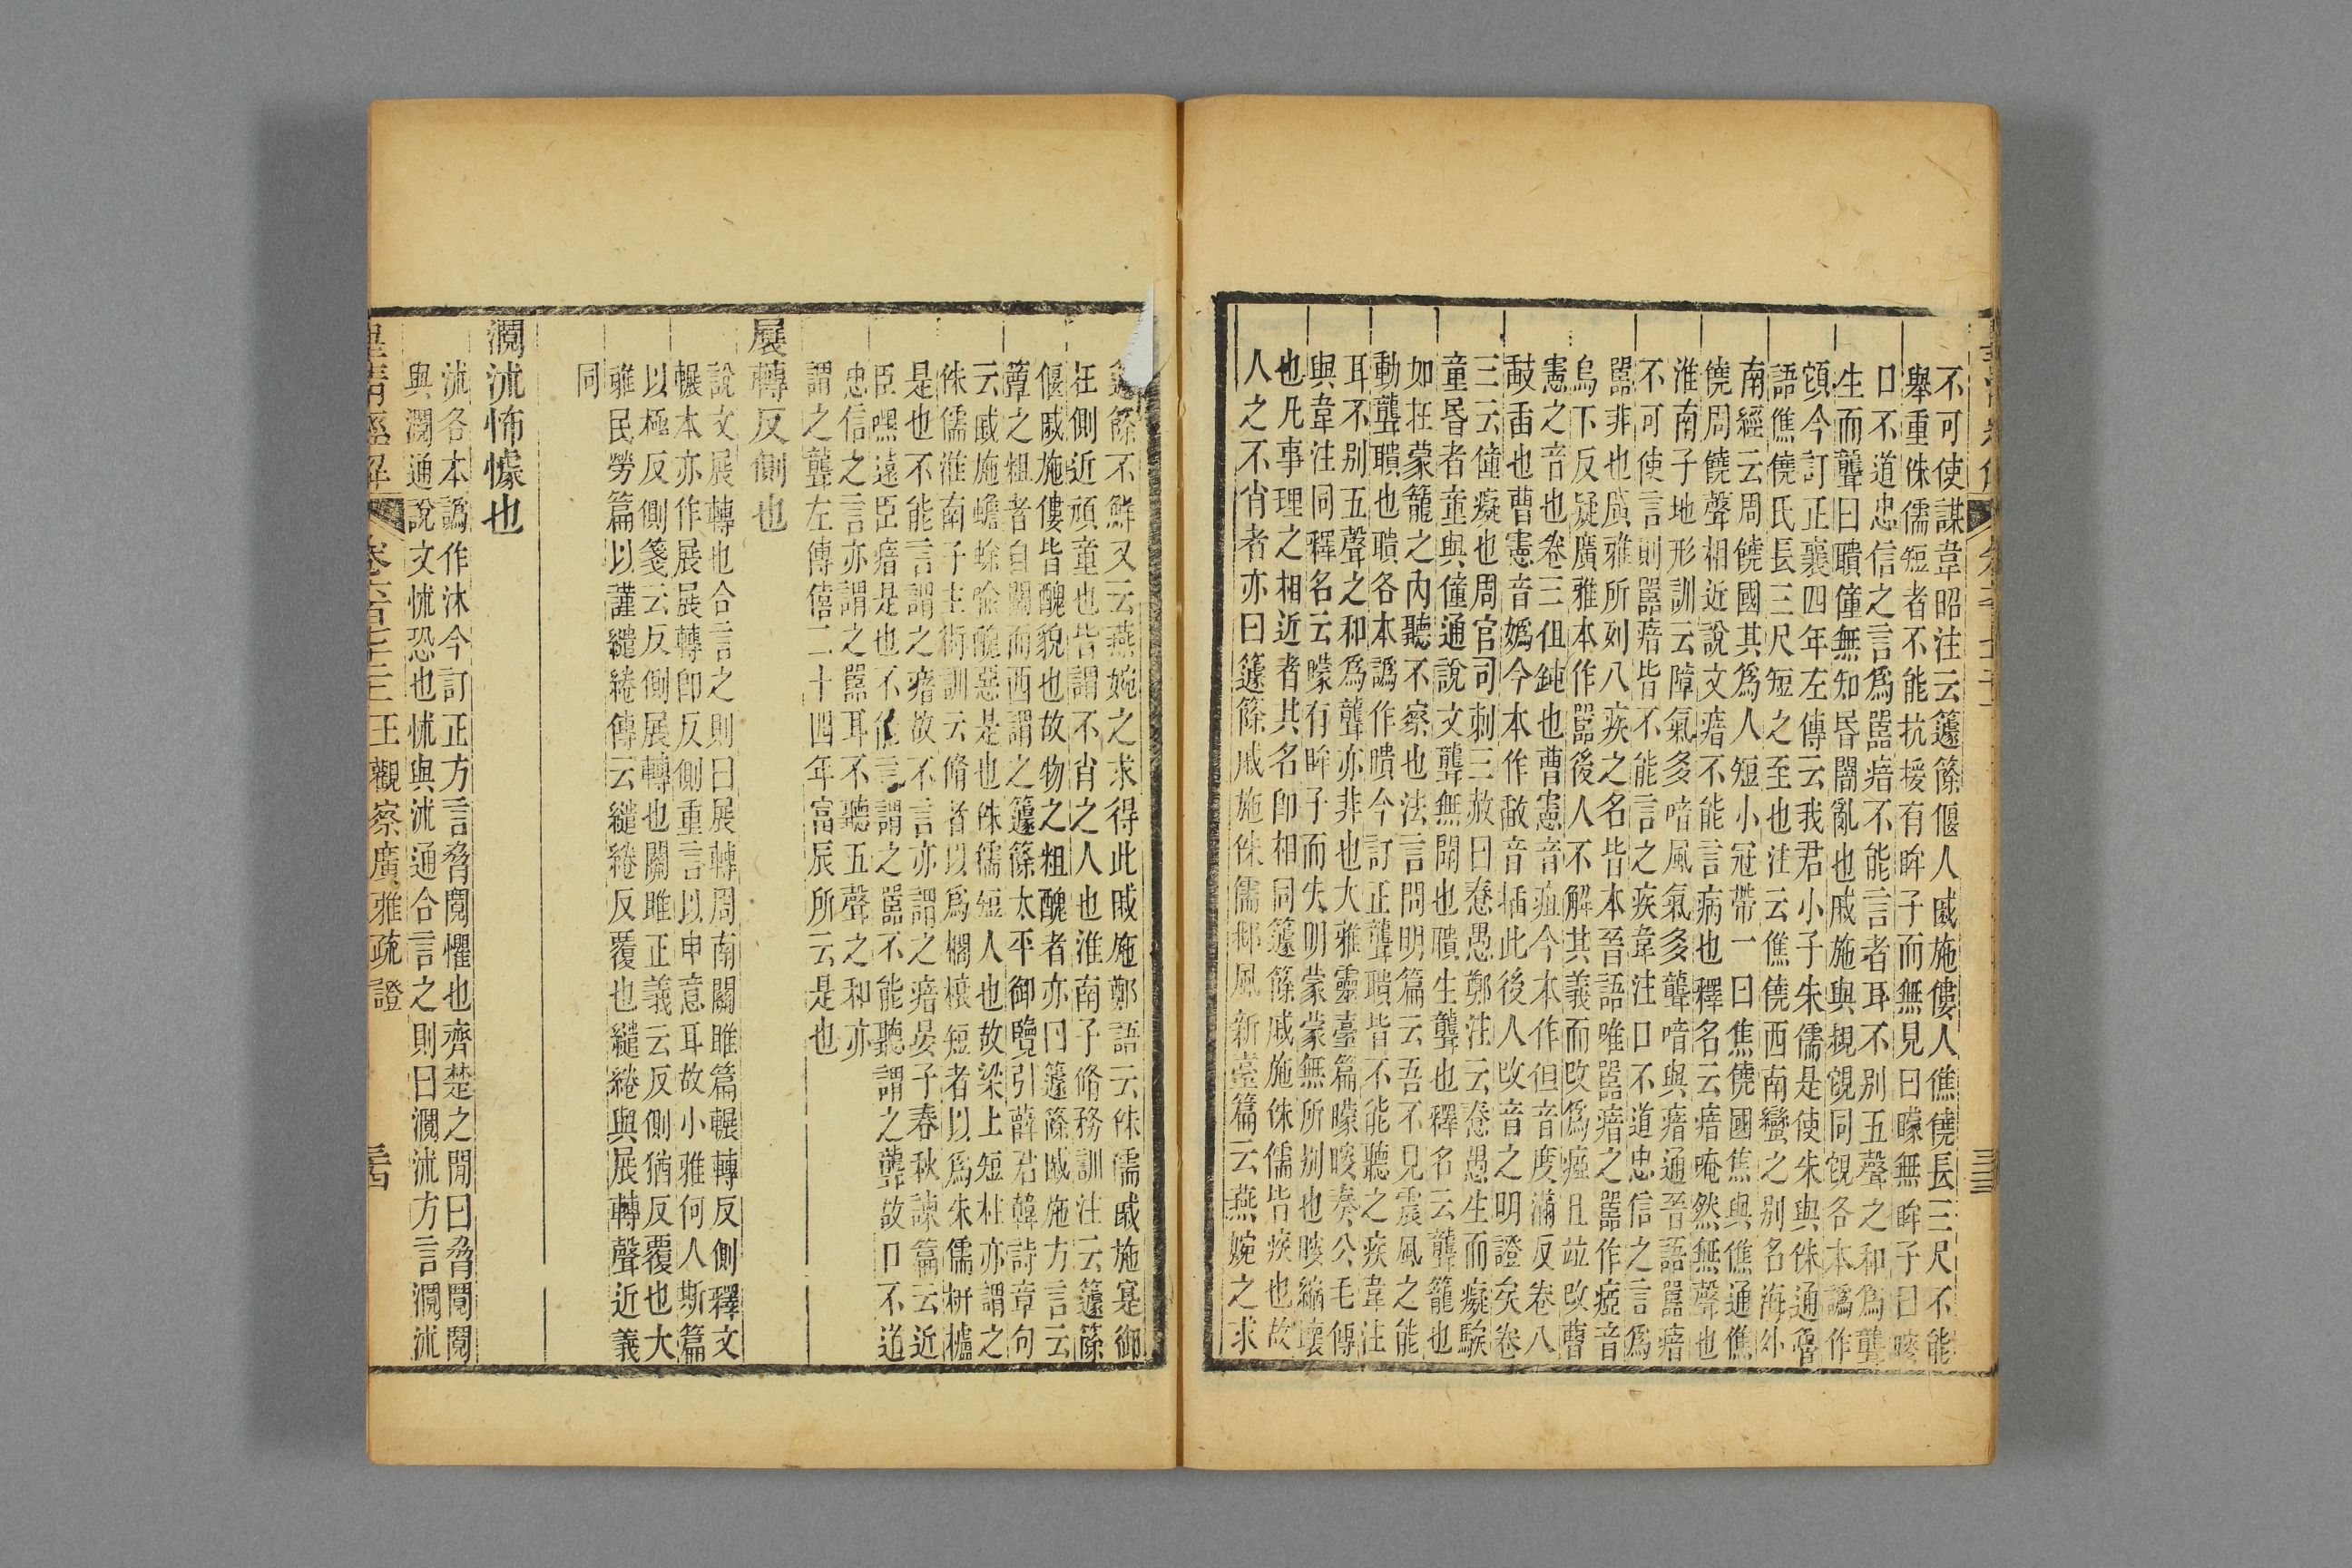 不可使謀韋昭注云籧篨偃人戚施僂人僬僥長三尺不能
舉重侏儒短者不能抗援有眸子而無見曰矇無眸子曰瞍
口不道忠信之言爲嚚瘖不能言者耳不别五聲之和爲聾
生而聾曰聵僮無知昬闇亂也戚施與覟覶同覶各本譌作
今訂正襄四年左傳云我君小子朱儒是使朱與侏通魯
語僬僥氏長三尺短之至也注云僬僥西南蠻之别名海外
南經云周饒國其爲人短小冠帶一曰焦僥國焦與僬通僬
僥周饒聲相近說文瘖不能言病也釋名云瘖唵然無聲也
淮南子地形訓云障氣多喑風氣多聾喑與瘖通晉語嚚瘖
不可使言則嚚瘖皆不能言之疾韋注口不道忠信之言爲
嚚非也廣雅所列八疾之名皆本晉語唯嚚瘖之嚚作瘂音
烏下反疑廣雅本作嚚後人不解其義而改爲瘂且竝改曹
憲之音也卷三伹鈍也曹憲音疽今本作但音度滿反卷八
敮臿也曹憲音嬀今本作敮音插此後人改音之明證矣卷
三云僮癡也周官司刺三赦曰惷愚鄭注云惷愚生而癡騃
童昬者童與僮通說文聾無聞也聵生聾也釋名云聾籠也
如在蒙籠之內聽不察也法言問明篇云吾不見震風之能
動聾聵也聵各本譌作瞶今訂正聾聵皆不能聽之疾韋注
耳不别五聲之和爲聾亦非也大雅靈臺篇矇瞍奏公毛傳
與韋注同釋名云矇有眸子而失明蒙蒙無所别也瞍縮壞
也凡事理之相近者其名卽相同籧篨戚施侏儒皆疾也故
人之不肖者亦曰籧篨戚施侏儒邶風新臺篇云燕婉之求
籧篨不鮮又云燕婉之求得此戚施鄭語云侏儒戚施寔御
在側近頑童也皆謂不肖之人也淮南子脩務訓注云籧篨
偃戚施僂皆醜貌也故物之粗醜者亦曰籧篨戚施方言云
簟之粗者自關而西謂之籧篨太平御覽引薛君韓詩章句
云戚施蟾蜍喻醜惡是也侏儒短人也故梁上短柱亦謂之
侏儒淮南子主術訓云脩者以爲櫩榱短者以爲朱儒枅櫨
是也不能言謂之瘖故不言亦謂之瘖晏子春秋諫篇云近
臣嘿遠臣瘖是也不能言謂之嚚不能聽謂之聾故口不道
忠信之言亦謂之嚚耳不聽五聲之和亦
謂之聾左傳僖二十四年富辰所云是也
展轉反側也
說文展轉也合言之則曰展轉周南關雎篇輾轉反側釋文
輾本亦作展展轉卽反側重言以申意耳故小雅何人斯篇
以極反側箋云反側展轉也關雎正義云反側猶反覆也大
雅民勞篇以謹繾綣傳云繾綣反覆也繾綣與展轉聲近義
同
㵍沭怖懅也
沭各本譌作沐今訂正方言脅鬩懼也齊楚之閒曰脅鬩
與㵍通說文怵恐也怵與沭通合言之則曰㵍沭方言㵍沭
皇清經解 卷六百七十三 王觀察廣雅疏證